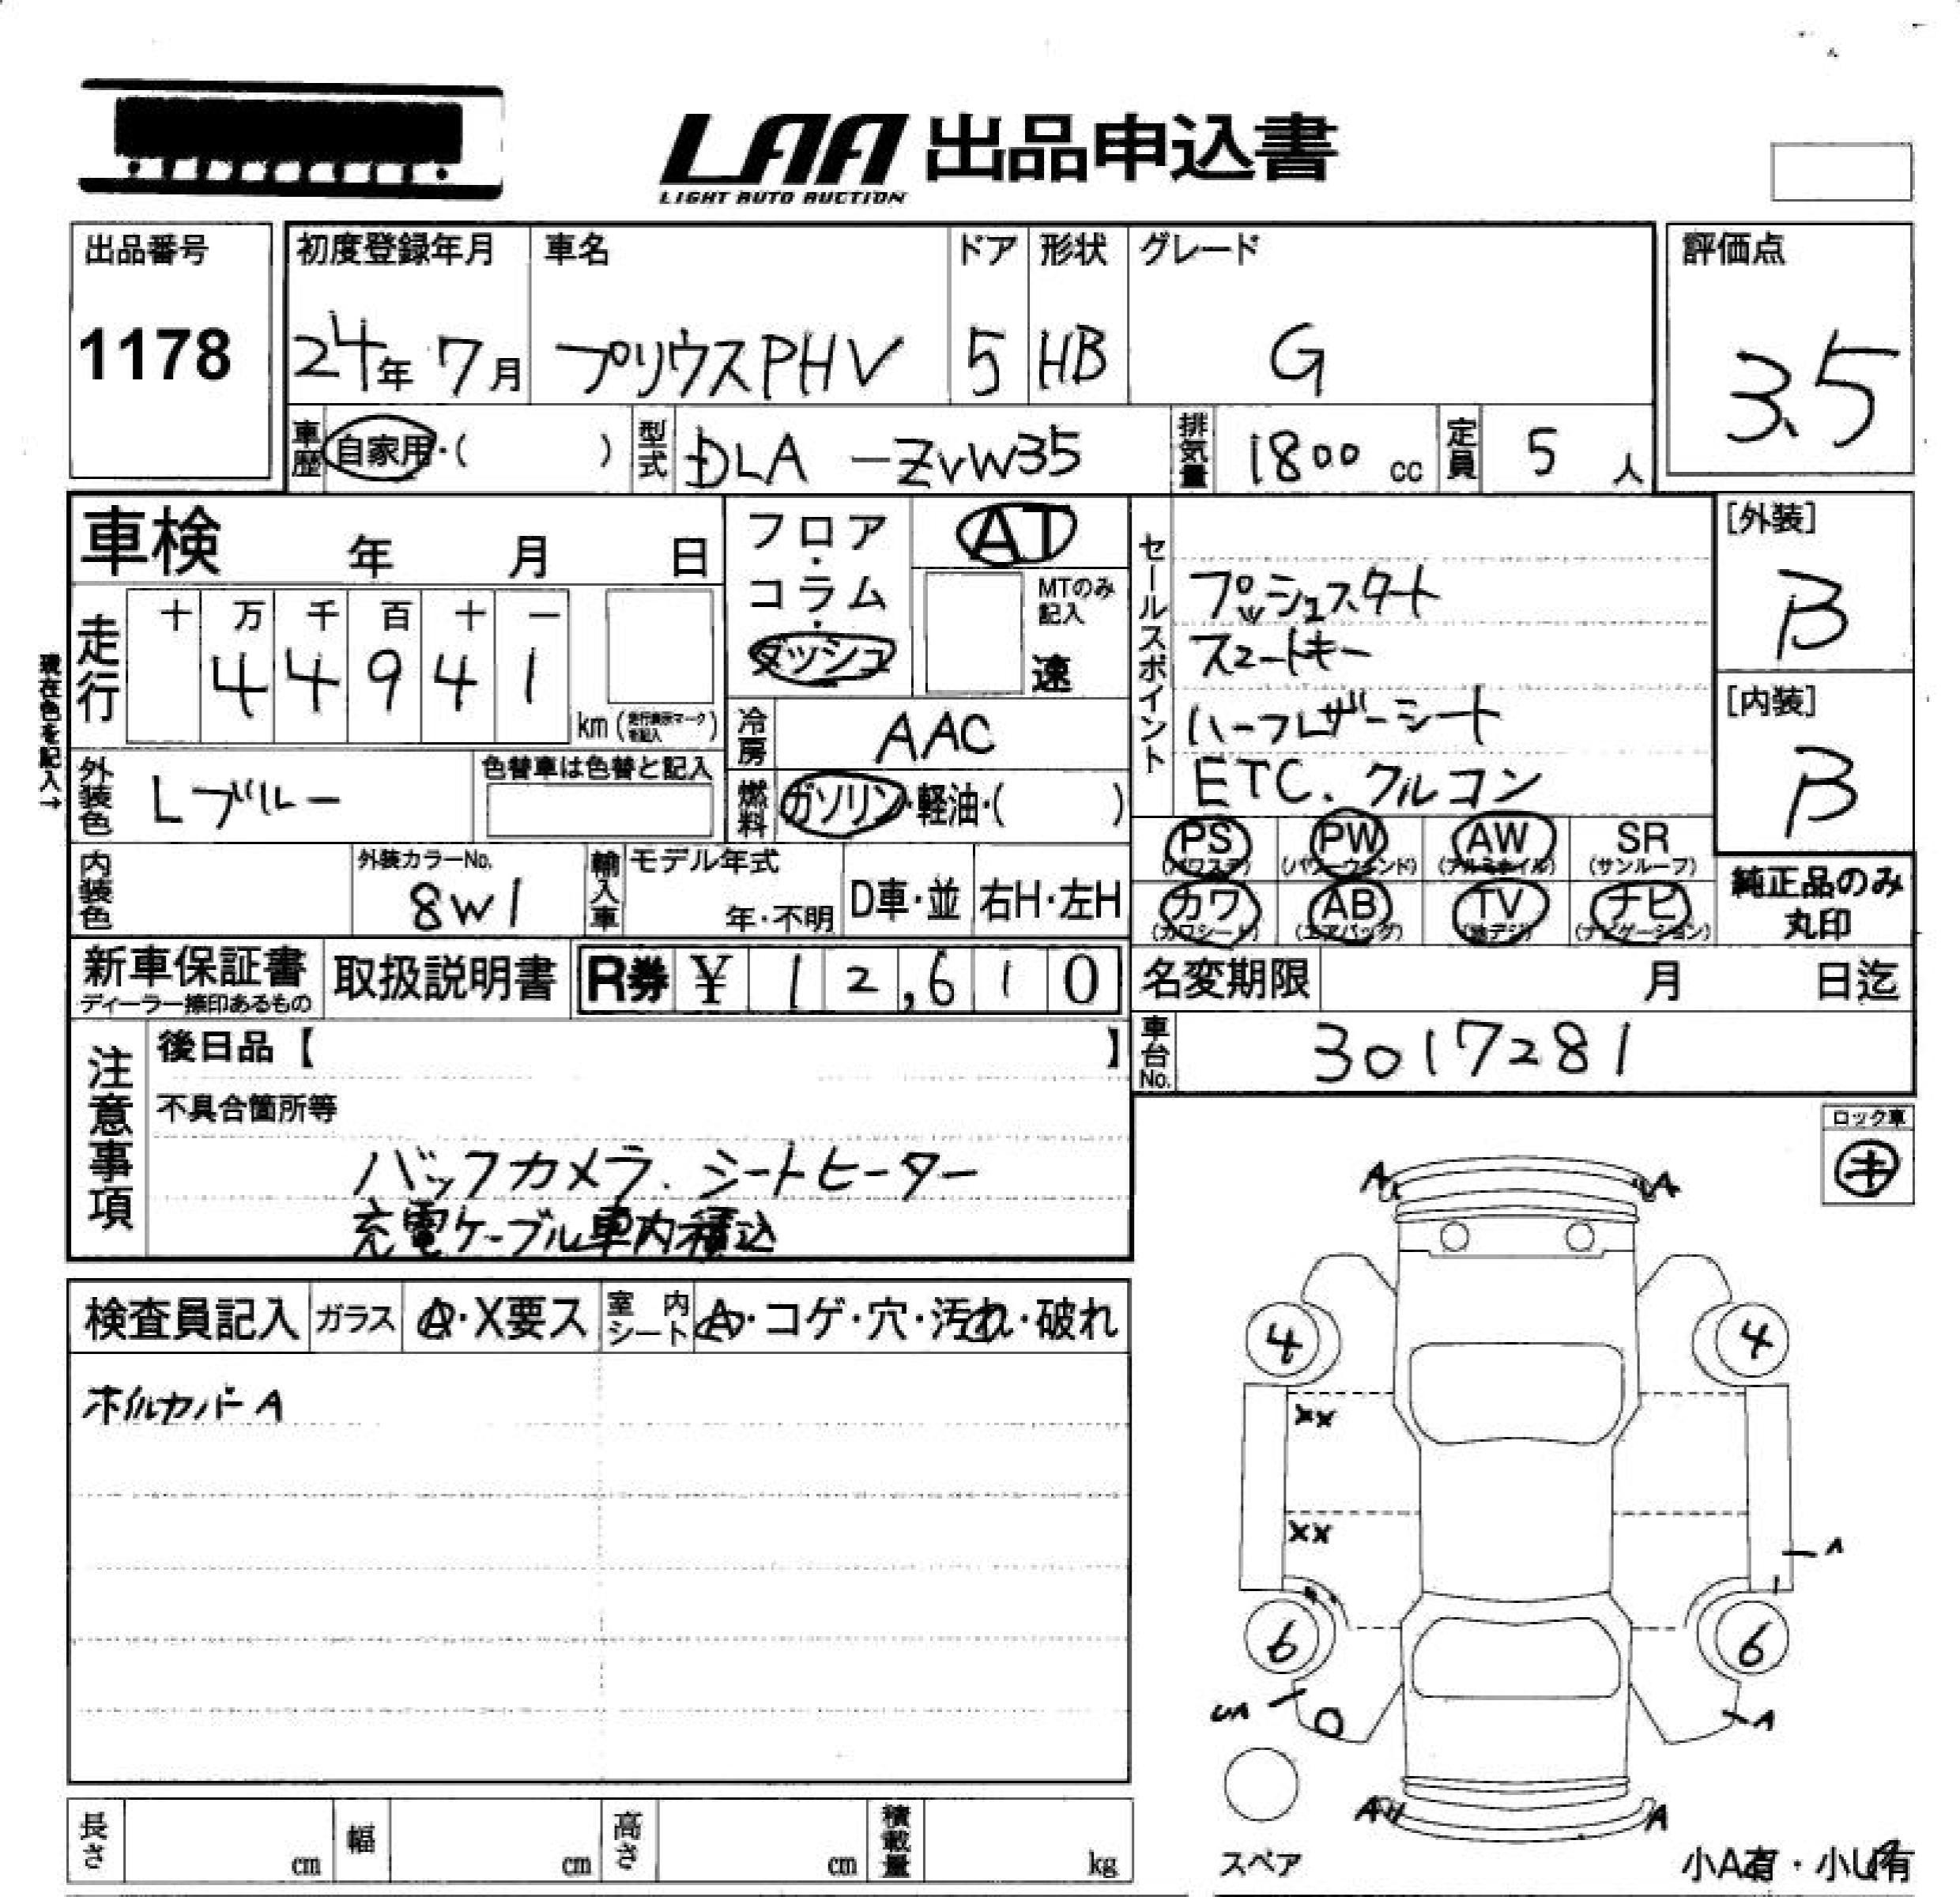 LAA 出品申込書
LIGHT AUTO AUCTION
出品番号
1178
初度登録年月
24年 7月
車名
プリウスPHV
ドア
5
形状
HB
グレード
G
評価点
3.5
車歴
自家用・( )
型式
DLA -ZVW35
排気量
1800 cc
定員
5 人
車検 年 月 日
走行
十 万 千 百 十 一
4 4 9 4 1
km (走行表示マーク を記入)
現在色を記入→
外装色
Lブルー
色替車は色替と記入
内装色
外装カラーNo.
8W1
フロア・コラム・ダッシュ
AT
MTのみ記入
速
冷房
AAC
燃料
ガソリン・軽油・( )
輸入車
モデル年式
年・不明
D車・並
右H・左H
セールスポイント
プッシュスタート
スマートキー
ハーフレザーシート
ETC. クルコン
PS (パワステ)
PW (パワーウィンド)
AW (アルミホイル)
SR (サンルーフ)
カワ (カワシート)
AB (エアバッグ)
TV (地デジ)
ナビ (ナビゲーション)
純正品のみ
丸印
[外装]
B
[内装]
B
新車保証書
ディーラー捺印あるもの
取扱説明書
R券 ¥ 12,610
名変期限 月 日迄
車台No.
3017281
注意事項
後日品【 】
不具合箇所等
バックカメラ. シートヒーター
充電ケーブル車内積込
ロック車
キ
検査員記入
ガラス
A・X要ス
室内シート
A・コゲ・穴・汚れ・破れ
ホイルカバー A
A A
4 4
XX
XX
A
6 6
A
A A
スペア
小A有・小U有
長さ cm
幅 cm
高さ cm
積載量 kg